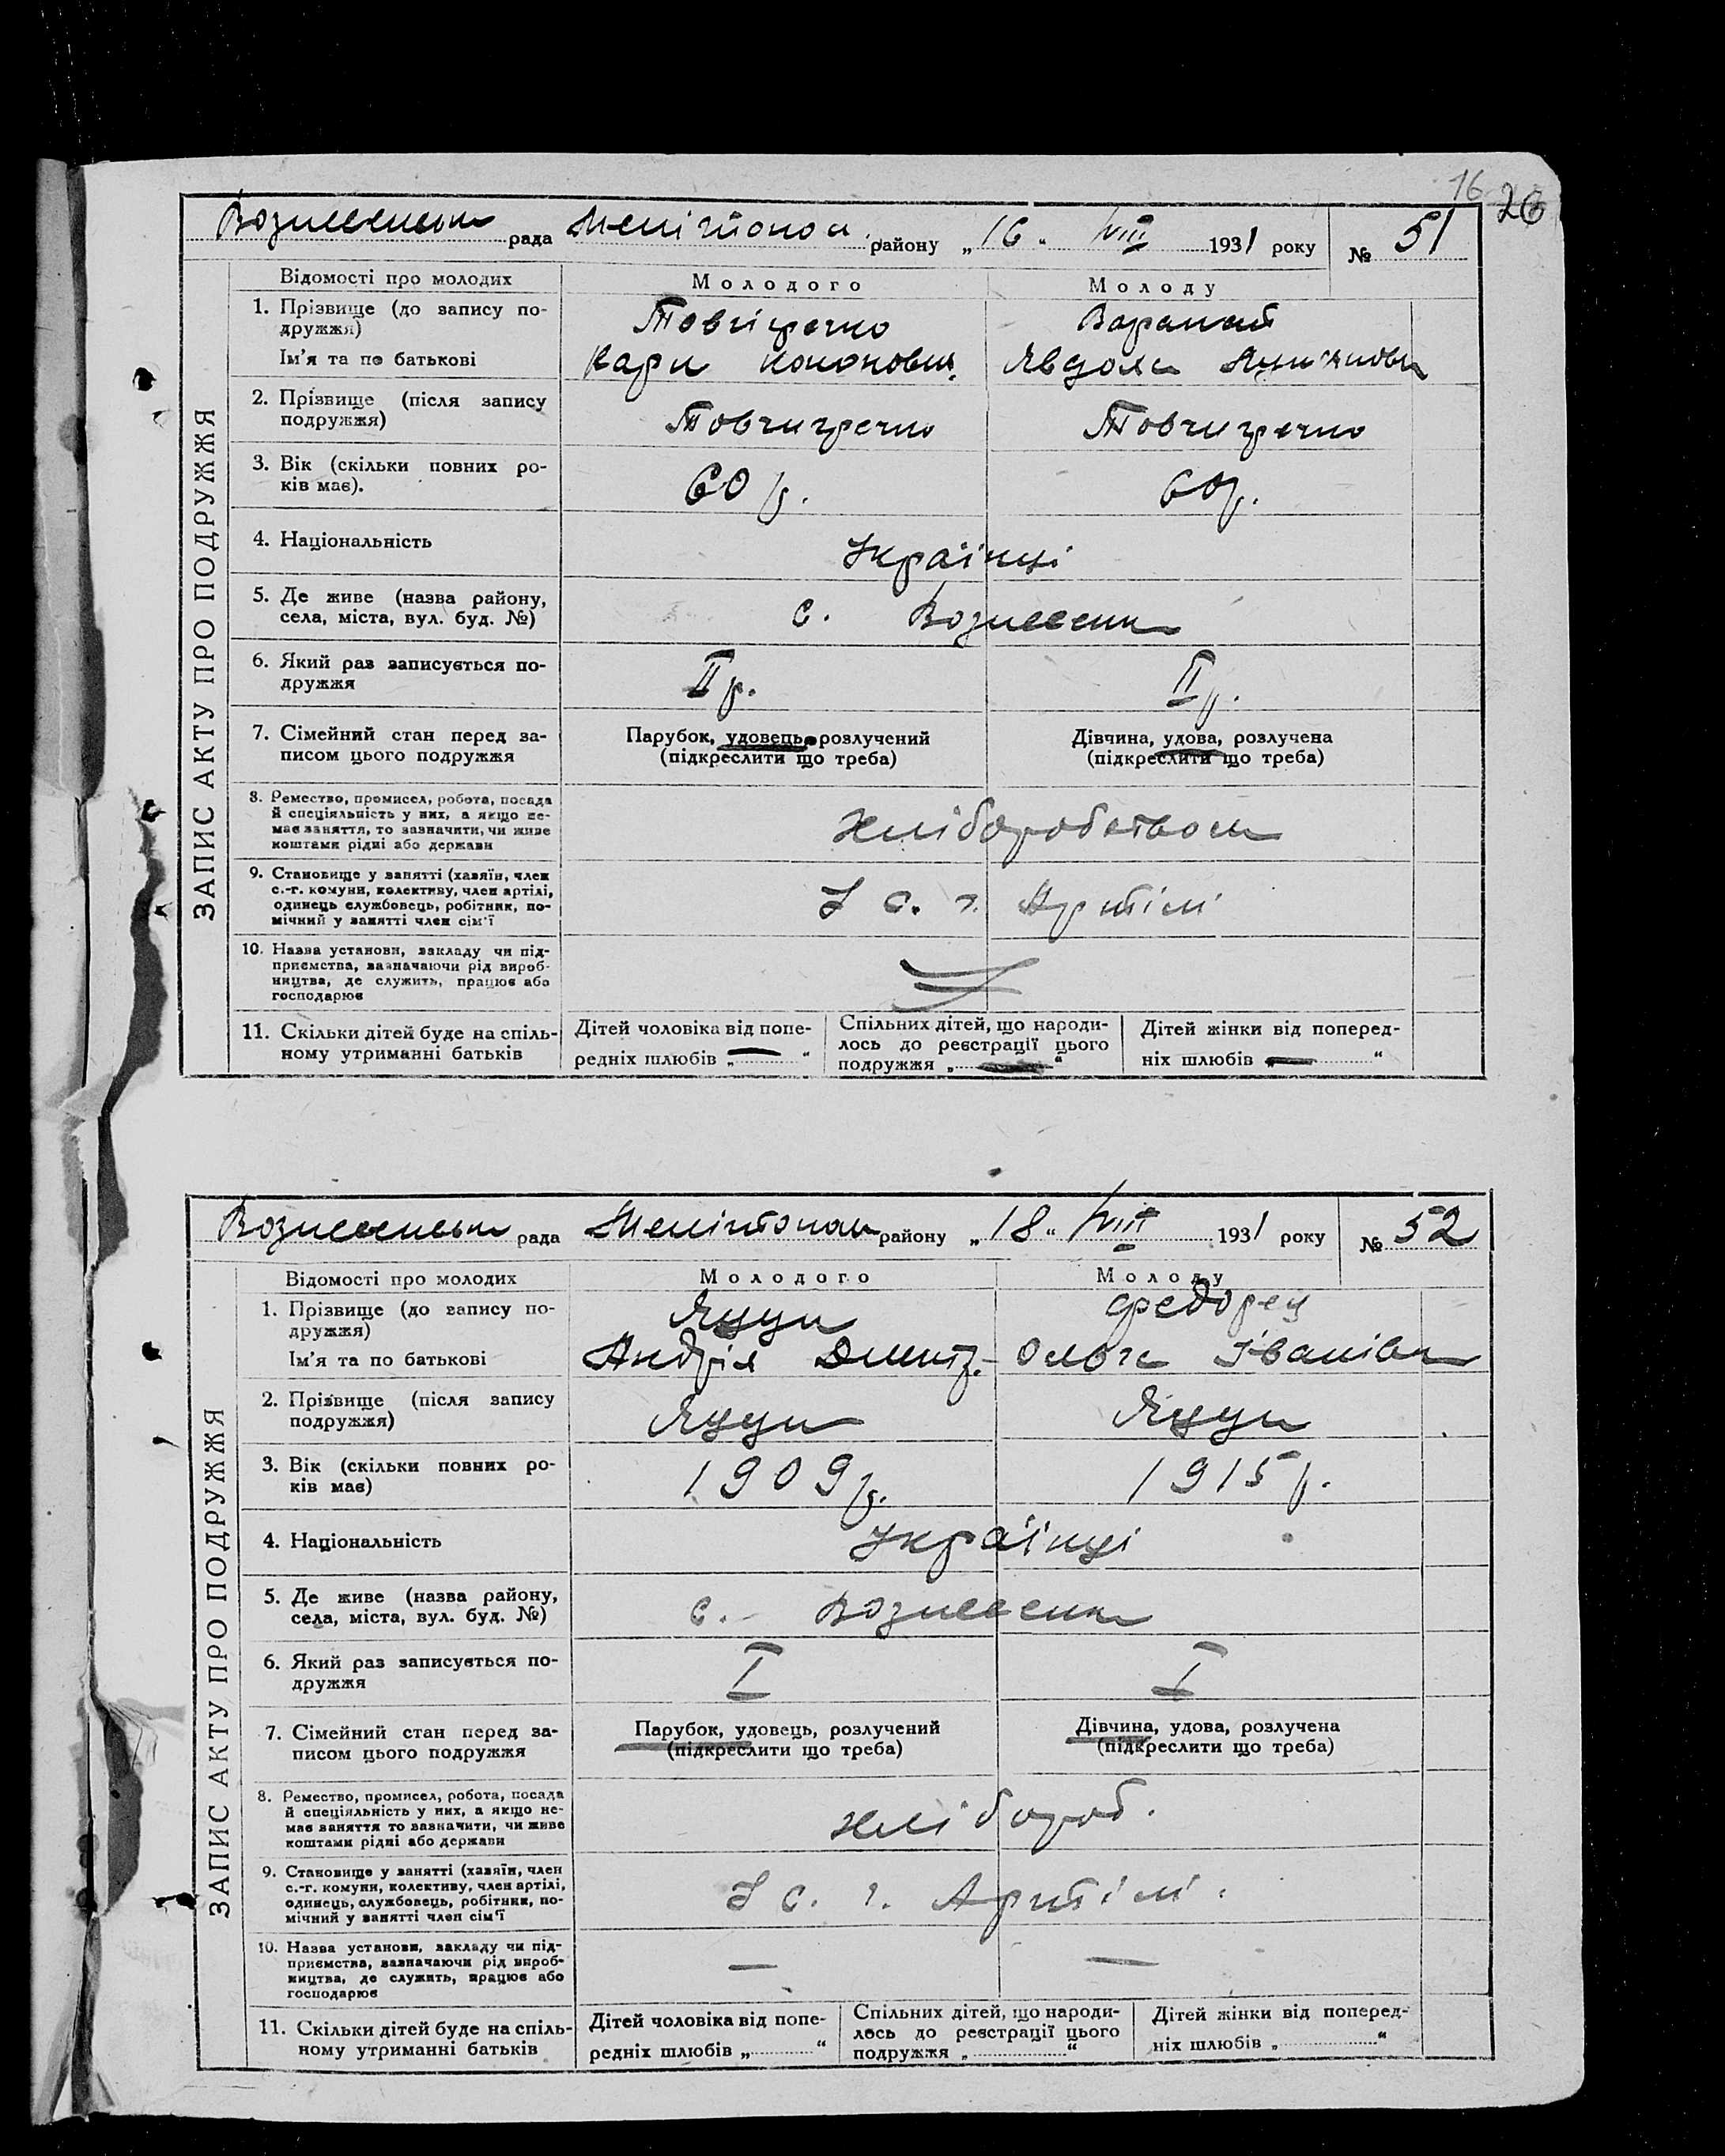 16 26
Вознесенськ рада Мелітопол. району „16“ VIII 1931 року № 51
ЗАПИС АКТУ ПРО ПОДРУЖЖЯ
Відомості про молодих Молодого Молоду
1. Прізвище (до запису по-
дружжя)
Товчігречко
Ім'я та по батькові
Карп Кононович Явдоха
2. Прізвище (після запису
подружжя)
Товчигречко Товчигречко
3. Вік (скільки повних ро-
ків має).
60 р. 60 р.
4. Національність
Українці
5. Де живе (назва району,
села, міста, вул. буд. №)
с. Вознесенк
6. Який раз записується по-
дружжя
II р. II р.
7. Сімейний стан перед за-
писом цього подружжя
Парубок, удовець, розлучений
(підкреслити що треба)
Дівчина, удова, розлучена
(підкреслити що треба)
8. Ремество, промисел, робота, посада
й спеціяльність у них, а якщо не-
має заняття, то зазначити, чи живе
коштами рідні або держави
Хліборобством
9. Становище у занятті (хазяїн, член
с.-г. комуни, колективу, член артілі,
одинець службовець, робітник, по-
мічний у занятті член сім'ї
У с. г. Артілі
10. Назва установи, закладу чи під-
приємства, зазначаючи рід вироб-
ництва, де служить, працює або
господарює
11. Скільки дітей буде на спіль-
ному утриманні батьків
Дітей чоловіка від попе-
редніх шлюбів „ — “
Спільних дітей, що народи-
лось до реєстрації цього
подружжя „ — “
Дітей жінки від поперед-
ніх шлюбів „ — “
Вознесенськ рада Мелітопол району „18“ VIII 1931 року № 52
ЗАПИС АКТУ ПРО ПОДРУЖЖЯ
Відомості про молодих Молодого Молоду
1. Прізвище (до запису по-
дружжя)
Яцун Федорец
Ім'я та по батькові
Андрія Дмитр. Ольга Іванівн
2. Прізвище (після запису
подружжя)
Яцун Яцун
3. Вік (скільки повних ро-
ків має)
1909 р. 1915 р.
4. Національність
Українці
5. Де живе (назва району,
села, міста, вул. буд. №)
с. Вознесенк
6. Який раз записується по-
дружжя
I I
7. Сімейний стан перед за-
писом цього подружжя
Парубок, удовець, розлучений
(підкреслити що треба)
Дівчина, удова, розлучена
(підкреслити що треба)
8. Ремество, промисел, робота, посада
й спеціяльність у них, а якщо не-
має заняття то зазначити, чи живе
коштами рідні або держави
Хлібороб.
9. Становище у занятті (хазяїн, член
с.-г. комуни, колективу, член артілі,
одинець, службовець, робітник, по-
мічний у занятті член сім'ї
У с. г. Артілі.
10. Назва установи, закладу чи під-
приємства, зазначаючи рід вироб-
ництва, де служить, працює або
господарює
— —
11. Скільки дітей буде на спіль-
ному утриманні батьків
Дітей чоловіка від попе-
редніх шлюбів „ “
Спільних дітей, що народи-
лось до реєстрації цього
подружжя „ “
Дітей жінки від поперед-
ніх шлюбів „ “